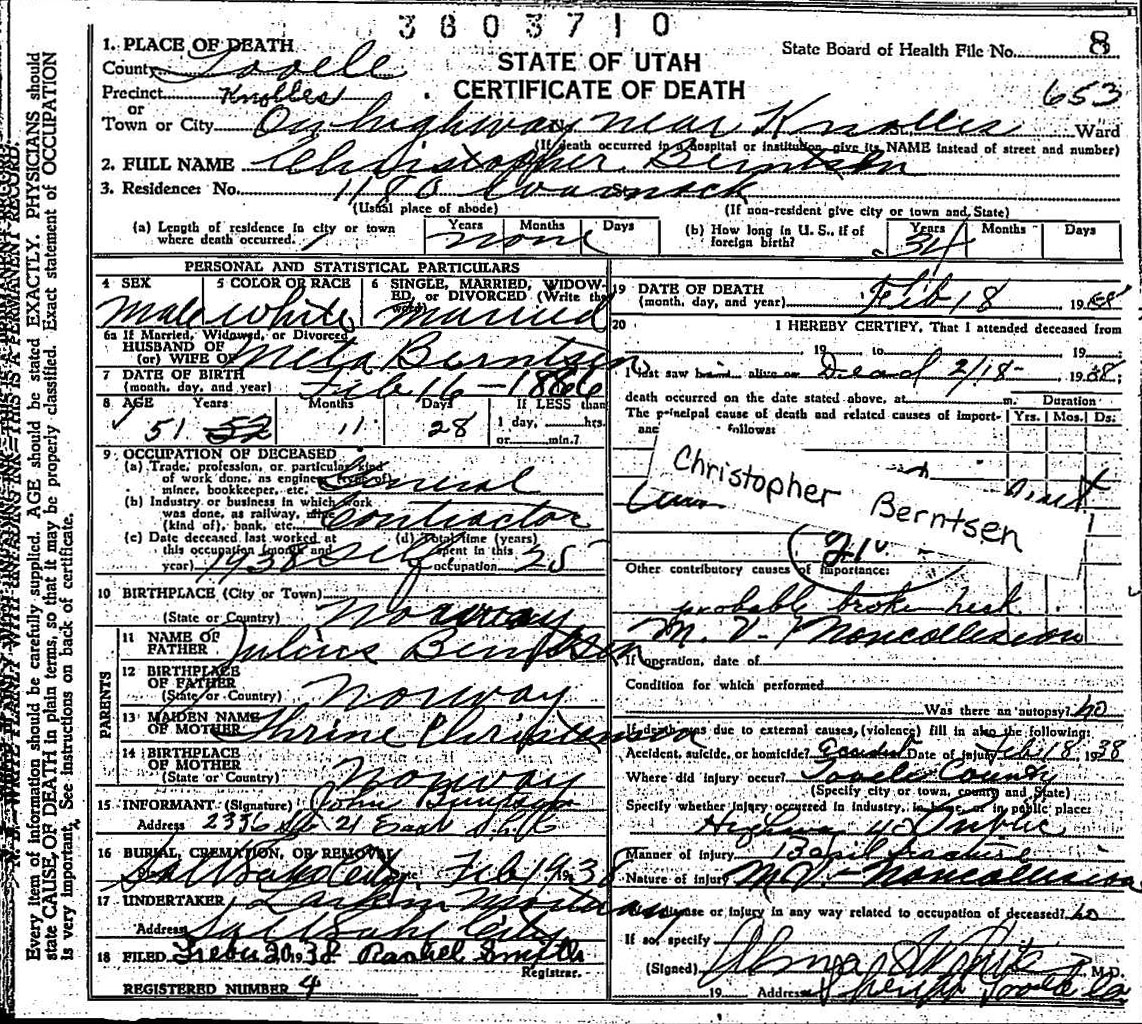 3803710
1. PLACE OF DEATH
STATE OF UTAH
CERTIFICATE OF DEATH
State Board of Health File No. 8
653
County Tooele
Precinct Knolles
or
Town or City On highway near Knolles Ward
(If death occurred in a hospital or institution, give its NAME instead of street and number)
2. FULL NAME Christopher Berntsen
3. Residence: No. 1180
(Usual place of abode) (If non-resident give city or town and State)
(a) Length of residence in city or town where death occurred. Years Months Days none
(b) How long in U. S., if of foreign birth? Years Months Days 34
PERSONAL AND STATISTICAL PARTICULARS
4 SEX 5 COLOR OR RACE 6 SINGLE, MARRIED, WIDOWED, or DIVORCED (Write the word)
Male white Married
6a If Married, Widowed, or Divorced
HUSBAND OF
(or) WIFE OF Meta Berntsen
7 DATE OF BIRTH
(month, day, and year) Feb 16 - 1886
8 AGE Years Months Days If LESS than
51 52 11 28 1 day, hrs.
or min.?
9 OCCUPATION OF DECEASED
(a) Trade, profession, or particular kind
of work done, as engineer (type of)
miner, bookkeeper, etc. General
(b) Industry or business in which work
was done, as railway, mine
(kind of), bank, etc. Contractor
(c) Date deceased last worked at
this occupation (month and
year) 1938
(d) Total time (years)
spent in this
occupation 25
10 BIRTHPLACE (City or Town)
(State or Country) Norway
PARENTS
11 NAME OF
FATHER Julius Berntsen
12 BIRTHPLACE
OF FATHER
(State or Country) Norway
13 MAIDEN NAME
OF MOTHER Thrine Christenson
14 BIRTHPLACE
OF MOTHER
(State or Country) Norway
15 INFORMANT (Signature) John Berntsen
Address 2336 21 East S.L.C.
16 BURIAL, CREMATION, OR REMOVAL
Salt Lake City Date Feb 1938
17 UNDERTAKER Larkin Mortuary
Address Salt Lake City
18 FILED Febr 20 1938 Rachel Smith
Registrar.
REGISTERED NUMBER 4
19 DATE OF DEATH
(month, day, and year) Feb 18 1938
20 I HEREBY CERTIFY, That I attended deceased from
19 to 19
I last saw him alive on Dead 2/18 1938
death occurred on the date stated above, at m. Duration
The principal cause of death and related causes of import- Yrs. Mos. Ds.
follows:
Christopher Berntsen
210
Other contributory causes of importance:
probable broke neck
M. V. Noncollision
If operation, date of
Condition for which performed
Was there an autopsy? no
If death was due to external causes, (violence) fill in also the following:
Accident, suicide, or homicide? Accident Date of injury Feb 18 1938
Where did injury occur? Tooele County
(Specify city or town, county and State)
Specify whether injury occurred in industry, in home, or in public place:
Highway 40 Public
Manner of injury Basil fracture
Nature of injury M.V. - Noncollision
Was disease or injury in any way related to occupation of deceased? no
If so, specify
(Signed) M.D.
19 Address Sheriff Tooele Co
N. B.—WRITE PLAINLY WITH UNFADING INK—THIS IS A PERMANENT RECORD.
Every item of information should be carefully supplied. AGE should be stated EXACTLY. PHYSICIANS should
state CAUSE OF DEATH in plain terms, so that it may be properly classified. Exact statement of OCCUPATION
is very important. See instructions on back of certificate.